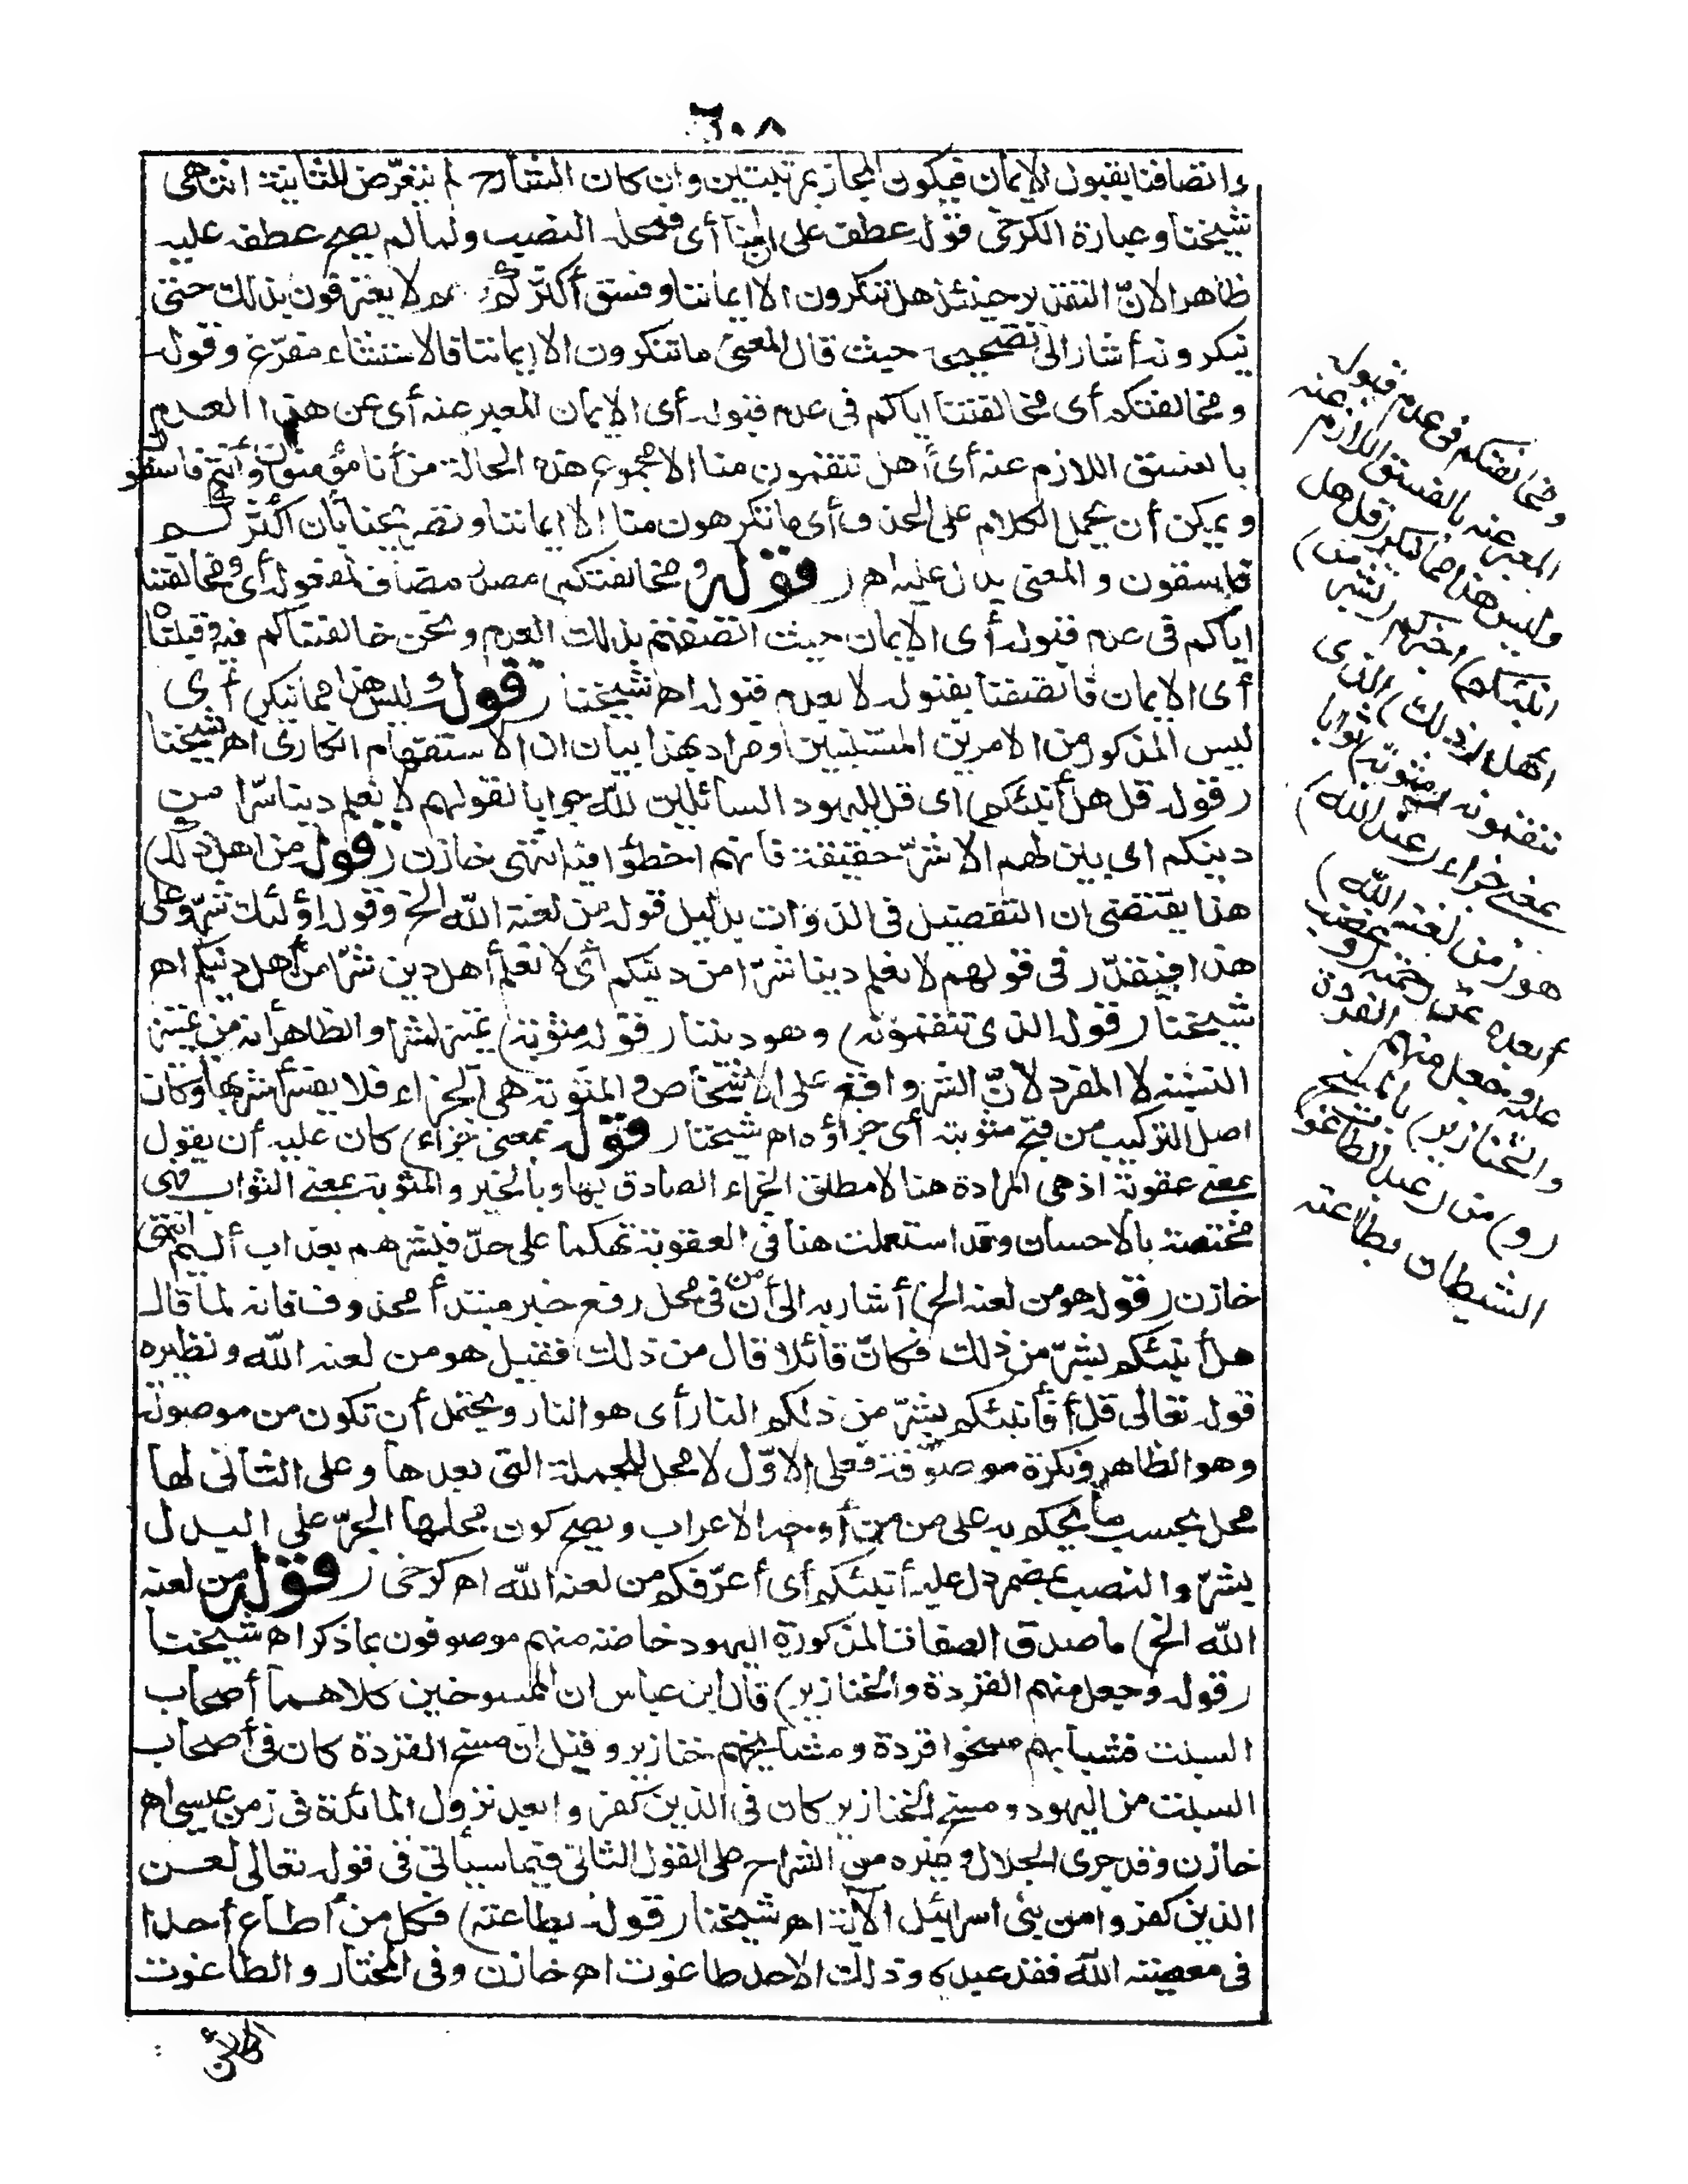 ٦٠٨
واتصافنا بقبول الايمان فيكون المجاز بمرتبتين وان كان الشارح لم يتعرّض للثانية انتهى
شيخنا وعبارة الكرخى قوله عطف على ان آمنا أى فمحله النصب ولما لم يصح عطفه عليه
ظاهرا لانّ التقدير حينئذ هل تنكرون الا ايماننا وفسق أكثركم وهم لا يعترفون بذلك حتى
ينكرونه أشار الى تصحيحه حيث قال المعنى ما تنكرون الا ايماننا فالاستثناء مفرّغ وقوله
ومخالفتكم أى مخالفتنا اياكم فى عدم قبوله أى الايمان المعبر عنه أى عن هذا العدم
بالفسق اللازم عنه أى هل تنقمون منا الا مجموع هذه الحالة من أنا مؤمنون وأنتم فاسقون
ويمكن أن يحمل الكلام على الحذف أى ما تكرهون منا الا ايماننا وتصريحنا بأن أكثركم
فاسقون والمعنى يدل عليه اه (قوله ومخالفتكم) مصدر مضاف لمفعوله أى ومخالفتنا
اياكم فى عدم قبوله أى الايمان حيث اتصفتم بذلك العدم ونحن خالفناكم فيه وقبلناه
أى الايمان فاتصفنا بقبوله لا بعدم قبوله اه شيخنا (قوله وليس هذا مما ينكر) أى
ليس المذكور من الامرين المستثنيين ومراده بهذا بيان ان الاستفهام انكارى اه شيخنا
(قوله قل هل أنبئكم) اى قل لليهود السائلين لك جوابا لقولهم لا نعلم دينا شرّا من
دينكم اى بين لهم الاشرّ حقيقة فانهم اخطؤا فيه انتهى خازن (قوله من اهل ذلك)
هذا يقتضى ان التفصيل فى الذوات بدليل قوله من لعنه الله الخ وقوله اؤلئك شرّ وعلى
هذا فيقدّر فى قولهم لا نعلم دينا شرّا من دينكم أى لا نعلم أهل دين شرّا من أهل دينكم اه
شيخنا (قوله الذى تنقمونه) وهو ديننا (قوله مثوبة) تمييز لشر والظاهر أنه من تمييز
النسبة لا المفرد لانّ الشر واقع على الاشخاص والمثوبة هى الجزاء فلا يفسر أشر بها وكان
اصل التركيب من قبح مثوبته أى جزاؤه اه شيخنا (قوله بمعنى جزاء) كان عليه أن يقول
بمعنى عقوبة اذ هى المرادة هنا لا مطلق الجزاء الصادق بها وبالخير والمثوبة بمعنى الثواب فهى
مختصة بالاحسان وقد استعملت هنا فى العقوبة تهكما على حدّ فبشرهم بعذاب أليم انتهى
خازن (قوله هو من لعنه الخ) أشار به الى أنّ من فى محل رفع خبر مبتدأ محذوف فانه لما قال
هل أنبئكم بشرّ من ذلك فكانّ قائلا قال من ذلك فقيل هو من لعنه الله ونظيره
قوله تعالى قل أفأنبئكم بشرّ من ذلكم النار أى هو النار ويحتمل أن تكون من موصولة
وهو الظاهر ونكرة موصوفة فعلى الاوّل لا محل للجملة التى بعدها وعلى الثانى لها
محل بحسب ما يحكم به على من من أوجه الاعراب ويصح كون محلها الجرّ على البدل
بشرّ والنصب بمضمر دل عليه أنبئكم أى أعرّفكم من لعنه الله اه كرخى (قوله من لعنه
الله الخ) ما صدق الصفات المذكورة اليهود خاصة منهم موصوفون بما ذكر اه شيخنا
(قوله وجعل منهم القردة والخنازير) قال ابن عباس ان الممسوخين كلاهما أصحاب
السبت فشبابهم مسخوا قردة ومشايخهم خنازير وقيل ان مسخ القردة كان فى أصحاب
السبت من اليهود ومسخ الخنازير كان فى الذين كفروا بعد نزول المائدة فى زمن عيسى اه
خازن وقد جرى الجلال وغيره من الشراح على القول الثانى فيما سيأتى فى قوله تعالى لعن
الذين كفروا من بنى اسرائيل الآية اه شيخنا (قوله بطاعته) فكل من أطاع أحدا
فى معصية الله فقد عبده وذلك الاحد طاغوت اه خازن وفى المختار والطاغوت
ومخالفتكم فى عدم قبوله
المعبر عنه بالفسق اللازم عنه
وليس هذا مما ينكر (قل هل
انبئكم) اخبركم (بشر من)
اهل (ذلك) الذى
تنقمونه (مثوبة) ثوابا
بمعنى جزاء (عند الله)
هو (من لعنه الله)
أبعده عن رحمته (وغضب
عليه وجعل منهم القردة
والخنازير) بالمسخ
(و) من (عبد الطاغوت)
الشيطان بطاعته